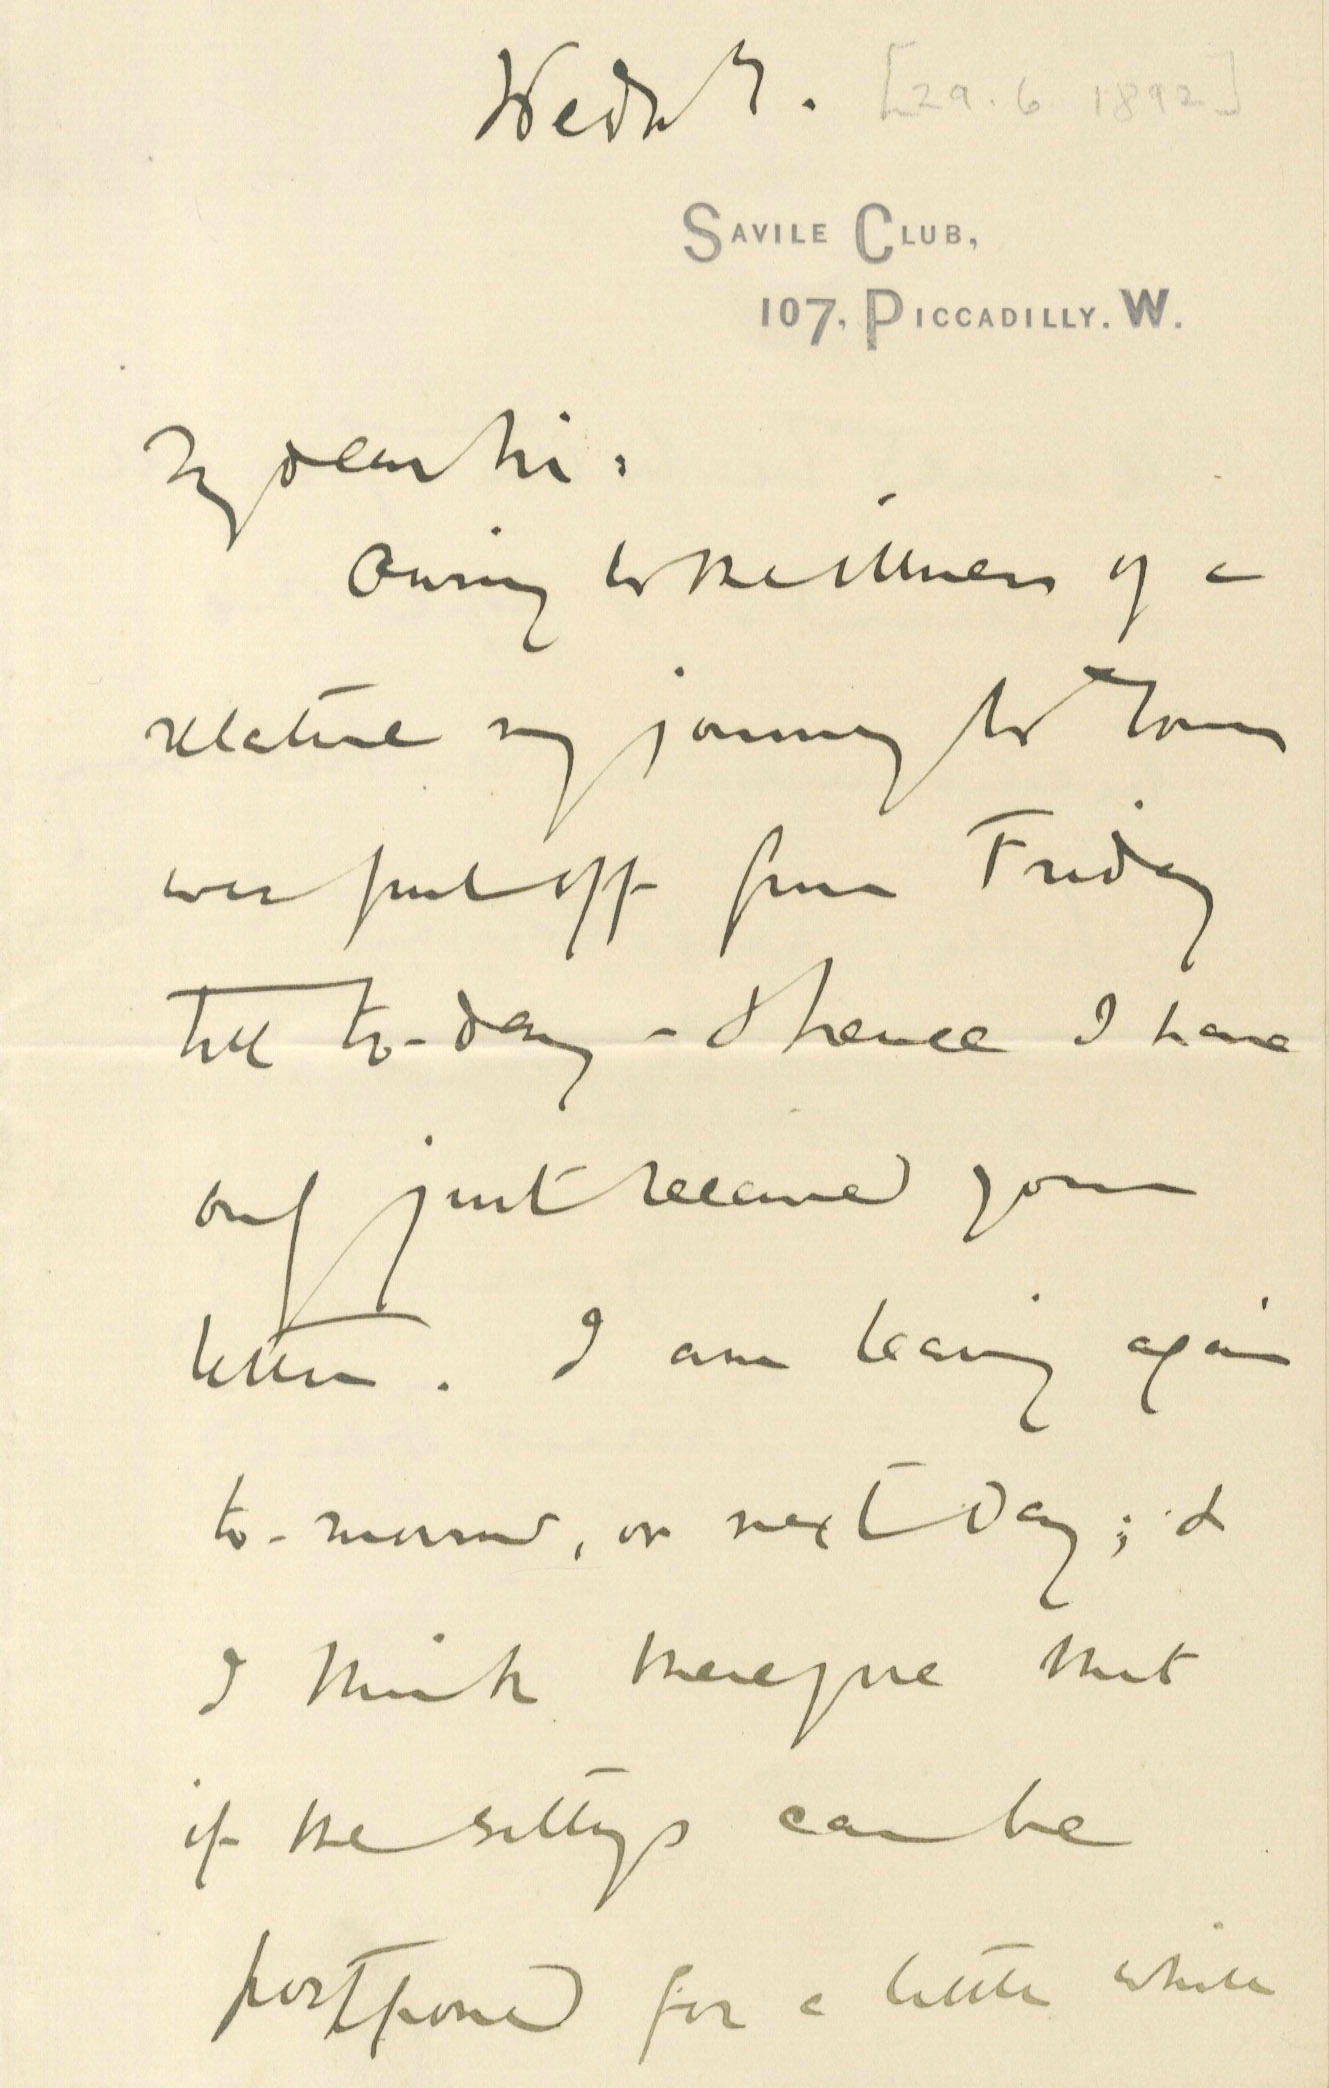 Wedny. [29.6 1892]
SAVILE CLUB,
107, PICCADILLY. W.
My dear Sir:
Owing to the illness of a
relative my journey to Town
was put off from Friday
till to-day - & hence I have
only just received your
letter. I am leaving again
to-morrow, or next day; &
I think therefore that
if the sittings can be
postponed for a little while